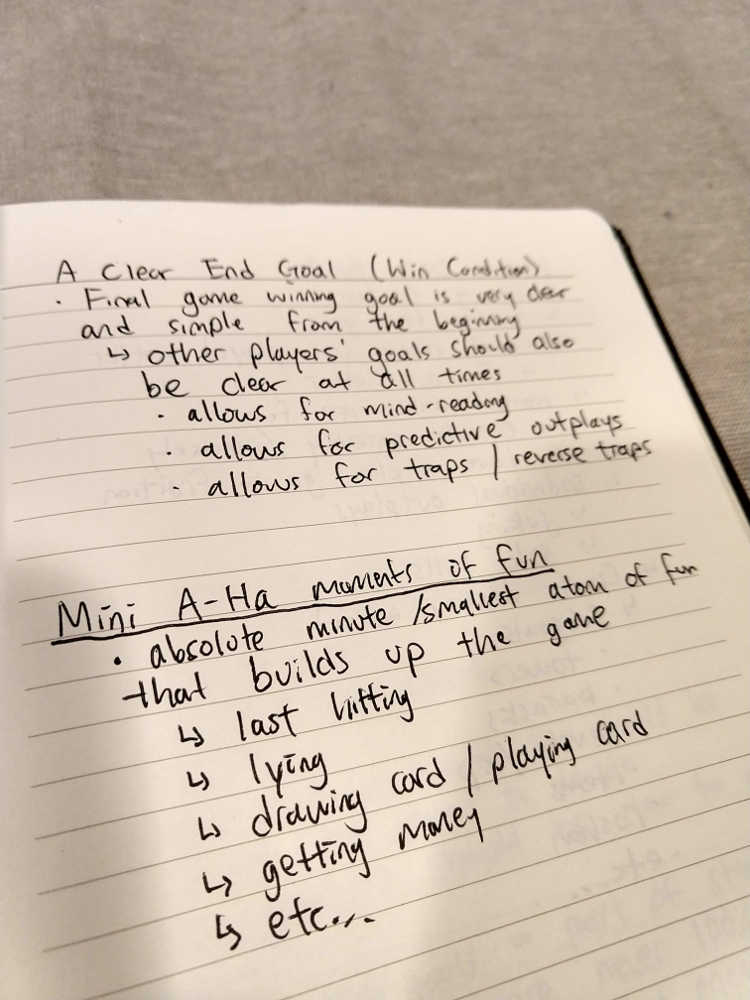 A Clear End Goal (Win Condition)
· Final game winning goal is very clear
and simple from the beginning
↳ other players' goals should also
be clear at all times
· allows for mind-reading
· allows for predictive outplays
· allows for traps / reverse traps
Mini A-Ha moments of fun
· absolute minute /smallest atom of fun
that builds up the game
↳ last hitting
↳ lying
↳ drawing card / playing card
↳ getting money
↳ etc...